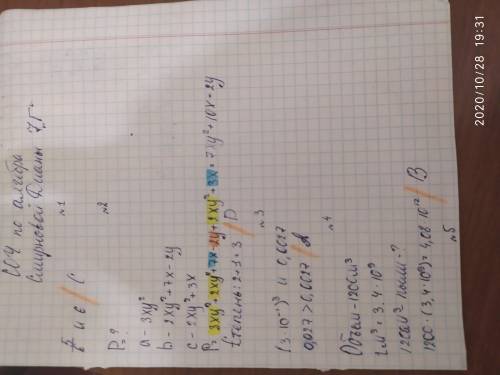 СОЧ по алгебре
Смирновой Дианы 7"Г"
№1
E и C
№2
P = ?
a - 3xy²
b - 2xy² + 7x - 2y
c - 2xy² + 3x
P = 3xy² + 2xy² + 7x - 2y + 2xy² + 3x = 7xy² + 10x - 2y
Степень: 2+1=3 / D
№3
(3·10⁻¹)³ и 0,0027
0,027 > 0,0027 / A
№4
Объем - 1200 см³
1 м³ = 3,4·10⁹
1200 м³ пыли - ?
1200 · (3,4·10⁹) = 4,08·10¹² / B
№5
2020/10/28 19:31